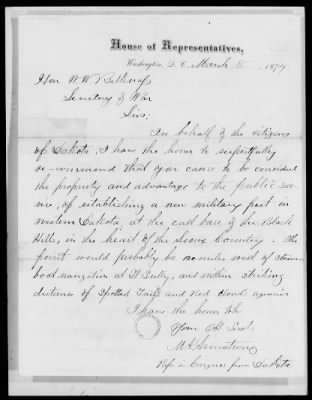 House of Representatives,
Washington, D. C. March 1874
Hon W W Belknap
Secretary of War
Sir:
In behalf of the citizens
of Dakota, I have the honor to respectfully
re-commend that you cause to be considered
the propriety and advantage to the public ser-
vice, of establishing a new military post in
western Dakota at the east base of the Black
Hills, in the heart of the Sioux Country. This
point would probably be miles west of steam
boat navigation at Ft Sully, and within striking
distance of Spotted Tail and Red Cloud agencies
I have the honor to be
Your Obt Servt
M K Armstrong
Rep. in Congress from Dakota